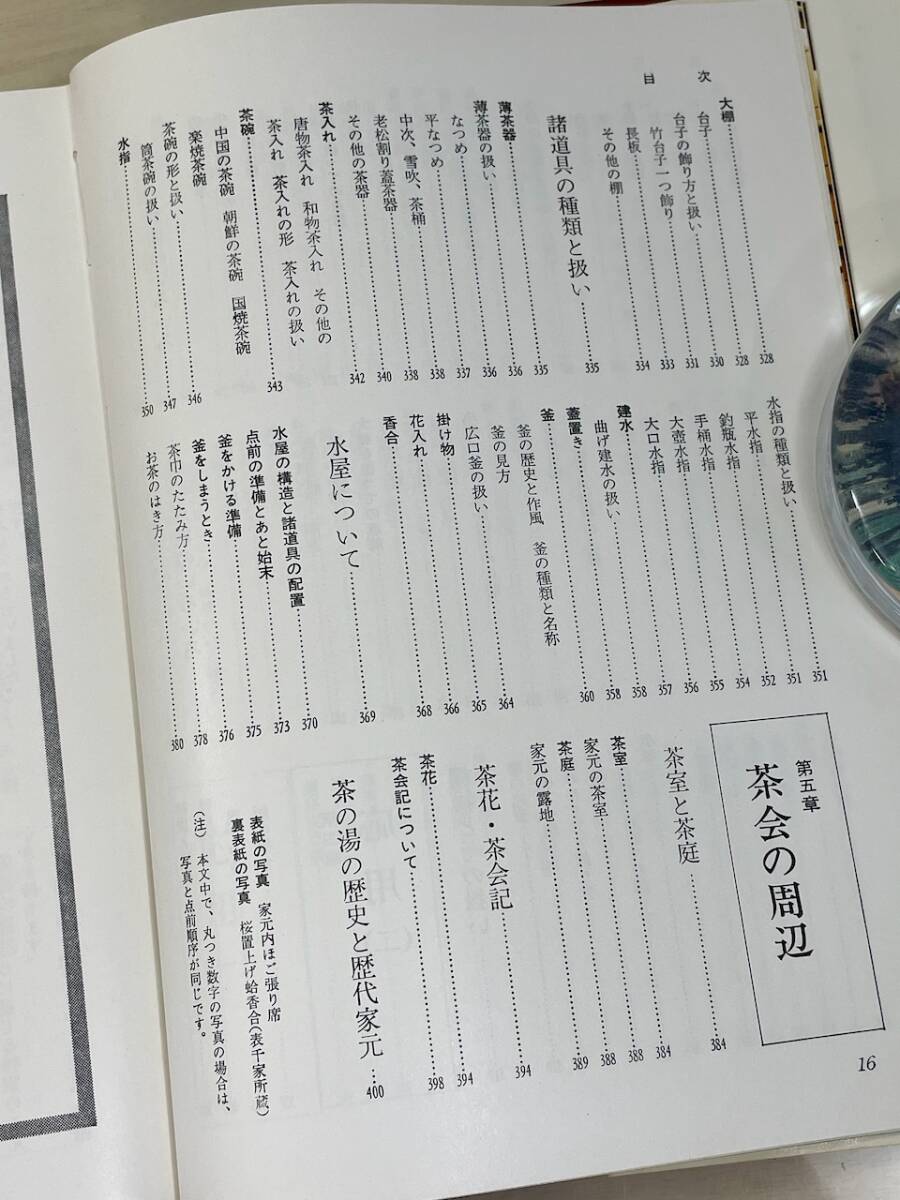 目次
大棚……328
台子……328
台子の飾り方と扱い……330
竹台子一つ飾り……331
長板……333
その他の棚……334
諸道具の種類と扱い……335
薄茶器……335
薄茶器の扱い……336
なつめ……336
平なつめ……337
中次、雪吹、茶桶……338
老松割り蓋茶器……338
その他の茶器……340
茶入れ……342
唐物茶入れ　和物茶入れ　その他の
茶入れ　茶入れの形　茶入れの扱い
茶碗……343
中国の茶碗　朝鮮の茶碗　国焼茶碗
楽焼茶碗
茶碗の形と扱い……346
筒茶碗の扱い……347
水指……350
水指の種類と扱い……351
平水指……351
釣瓶水指……352
手桶水指……354
大壺水指……355
大口水指……356
建水……357
曲げ建水の扱い……358
蓋置き……358
釜……360
釜の歴史と作風　釜の種類と名称
釜の見方
広口釜の扱い……364
掛け物……365
花入れ……366
香合……368
水屋について……369
水屋の構造と諸道具の配置……370
点前の準備とあと始末……373
釜をかける準備……375
釜をしまうとき……376
茶巾のたたみ方……378
お茶のはき方……380
第五章
茶会の周辺
茶室と茶庭……384
茶室……384
家元の茶室……388
茶庭……388
家元の露地……389
茶花・茶会記……394
茶花……394
茶会記について……398
茶の湯の歴史と歴代家元…400
表紙の写真　家元内ほご張り席
裏表紙の写真　桜置上げ蛤香合(表千家所蔵)
(注)　本文中で、丸つき数字の写真の場合は、
写真と点前順序が同じです。
16